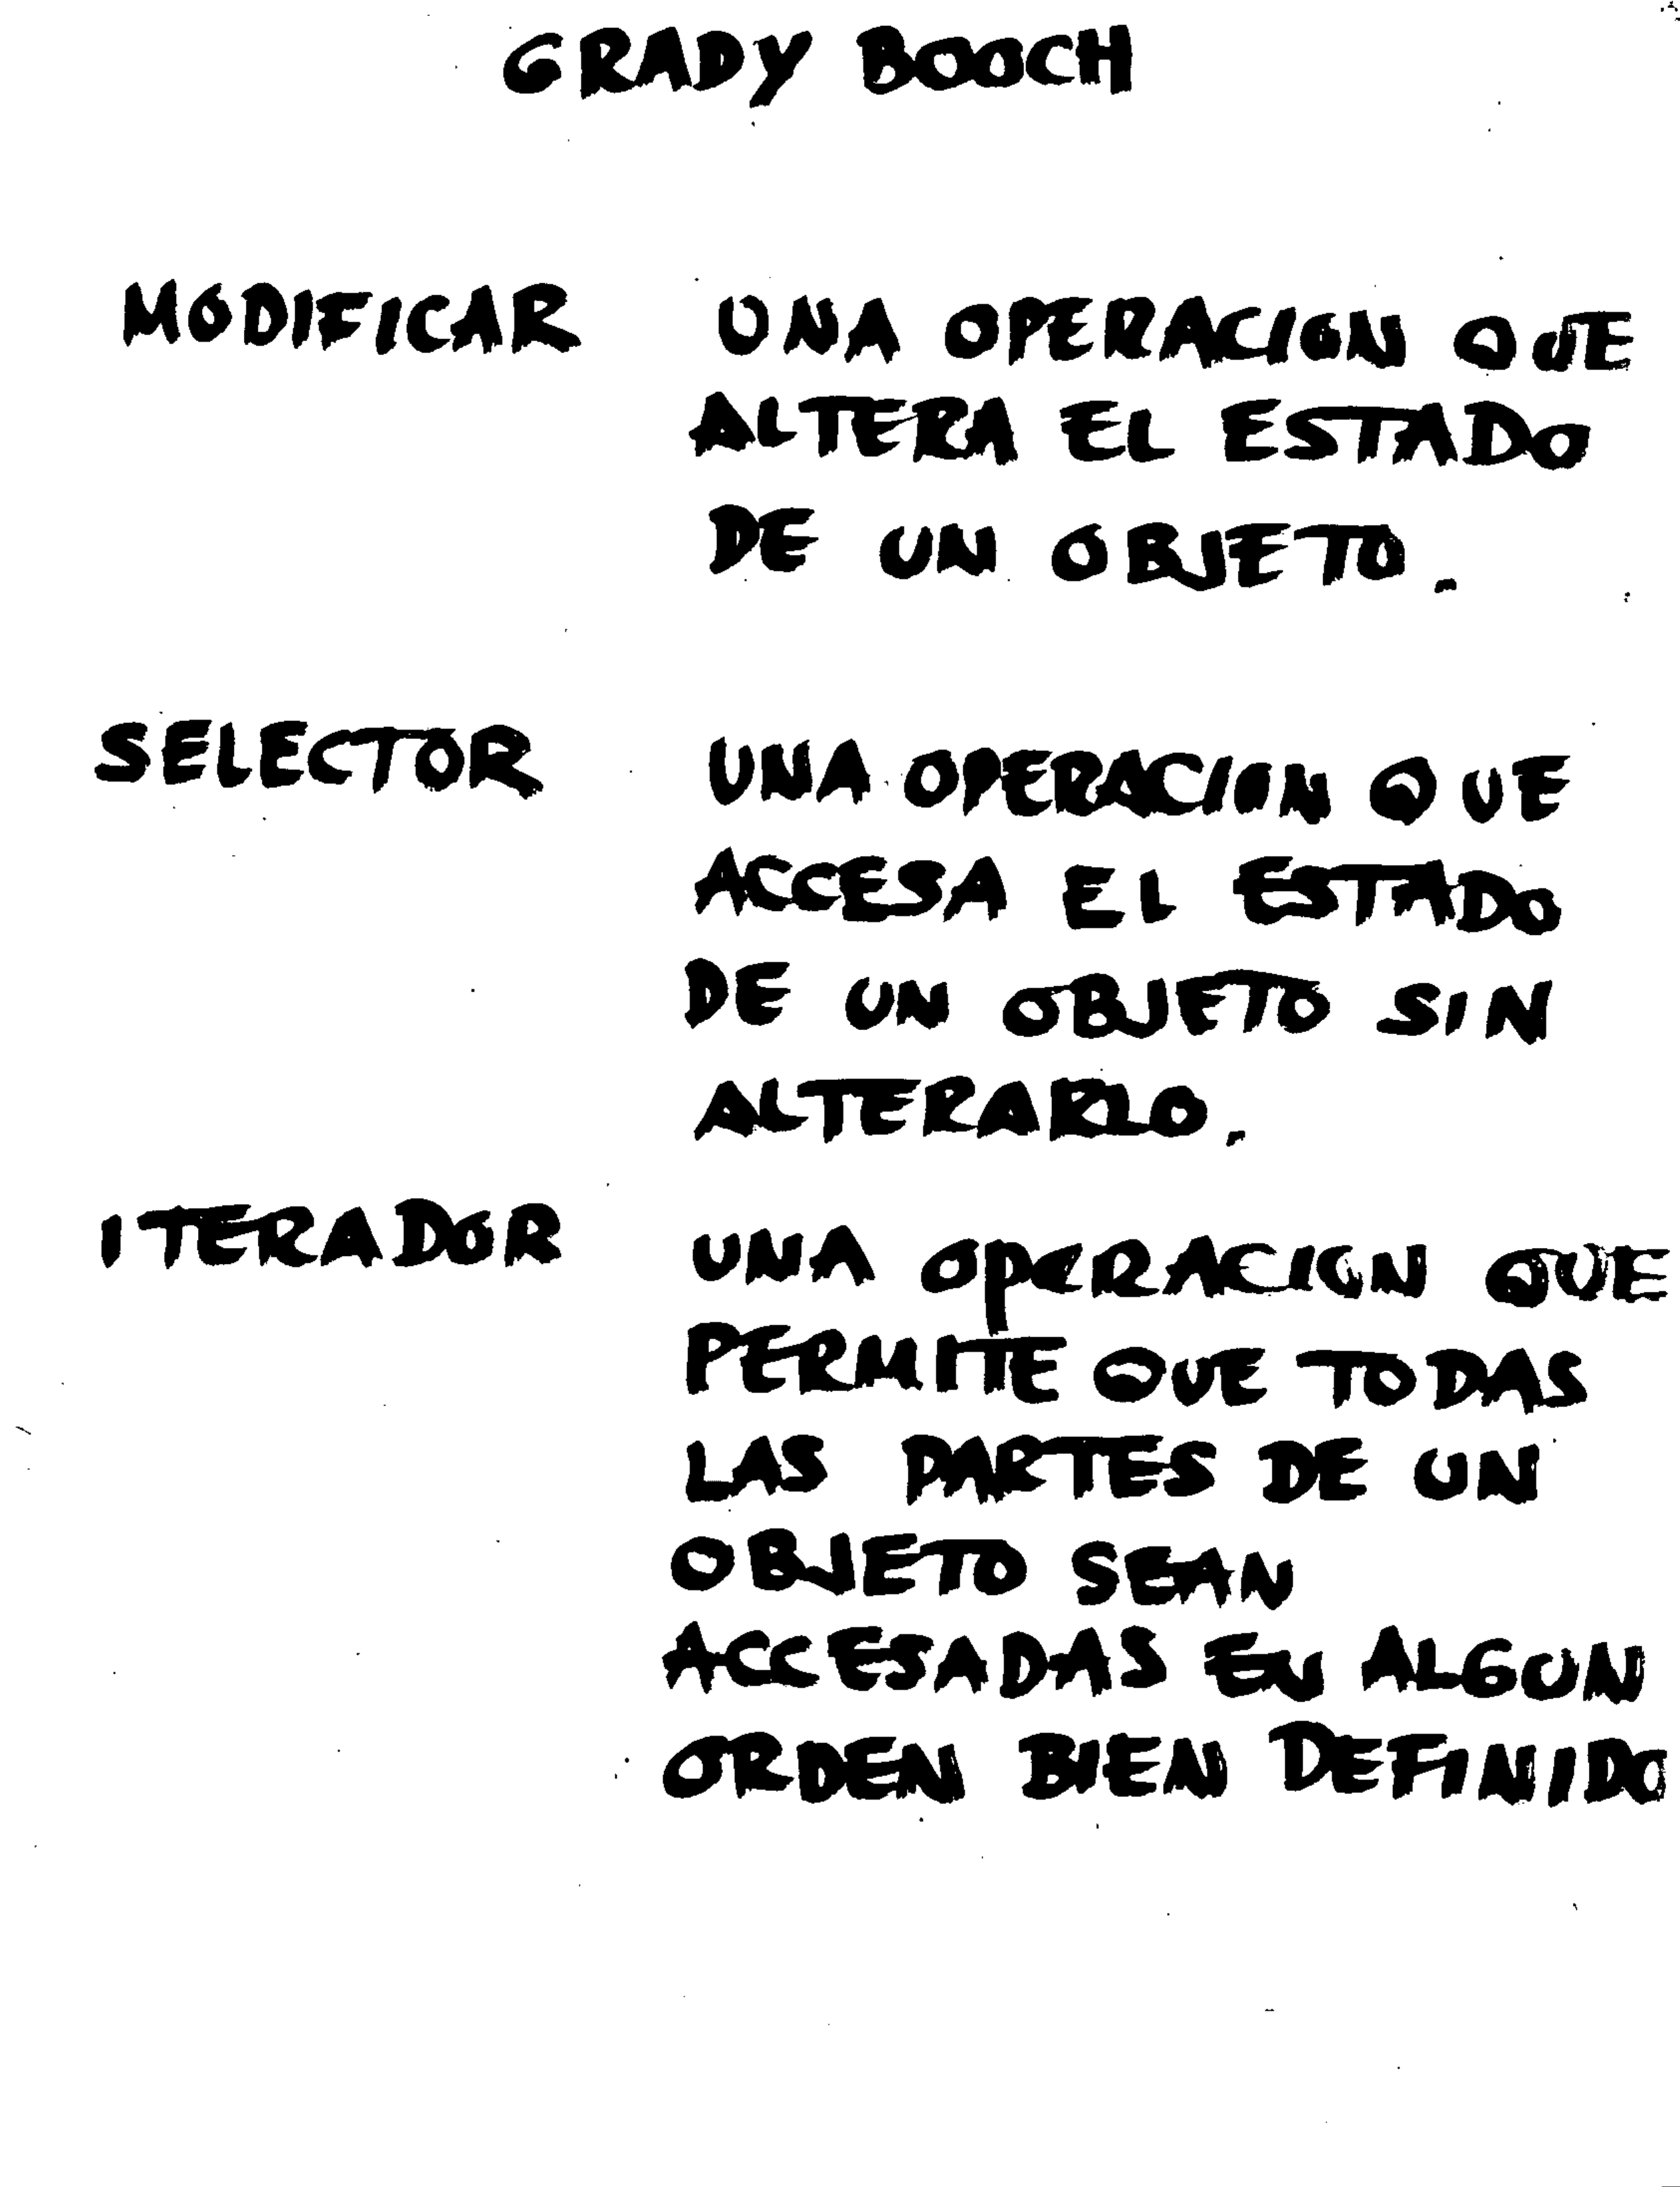 GRADY BOOCH
MODIFICAR UNA OPERACION QUE
ALTERA EL ESTADO
DE UN OBJETO.
SELECTOR UNA OPERACION QUE
ACCESA EL ESTADO
DE UN OBJETO SIN
ALTERARLO.
ITERADOR UNA OPERACION QUE
PERMITE QUE TODAS
LAS PARTES DE UN
OBJETO SEAN
ACCESADAS EN ALGUN
ORDEN BIEN DEFINIDO